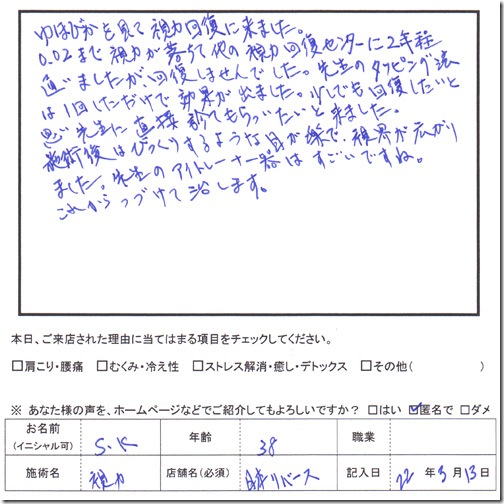 ゆほびかを見て視力回復に来ました。
0.02まで視力が落ちて他の視力回復センターに2年程
通いましたが、回復しませんでした。先生のタッピング法
は1回しただけで効果が出ました。少しでも回復したいと
思い先生に直接診てもらいたいと来ました。
施術後はびっくりするような目が楽で、視界が広がり
ました。先生のアイトレーナー器はすごいですね。
これからつづけて治します。
本日、ご来店された理由に当てはまる項目をチェックしてください。
□肩こり・腰痛 □むくみ・冷え性 □ストレス解消・癒し・デトックス □その他( )
※ あなた様の声を、ホームページなどでご紹介してもよろしいですか? □はい ☑匿名で □ダメ
お名前 (イニシャル可) S.K 年齢 38 職業
施術名 視力 店舗名(必須) リバース 記入日 22年5月13日